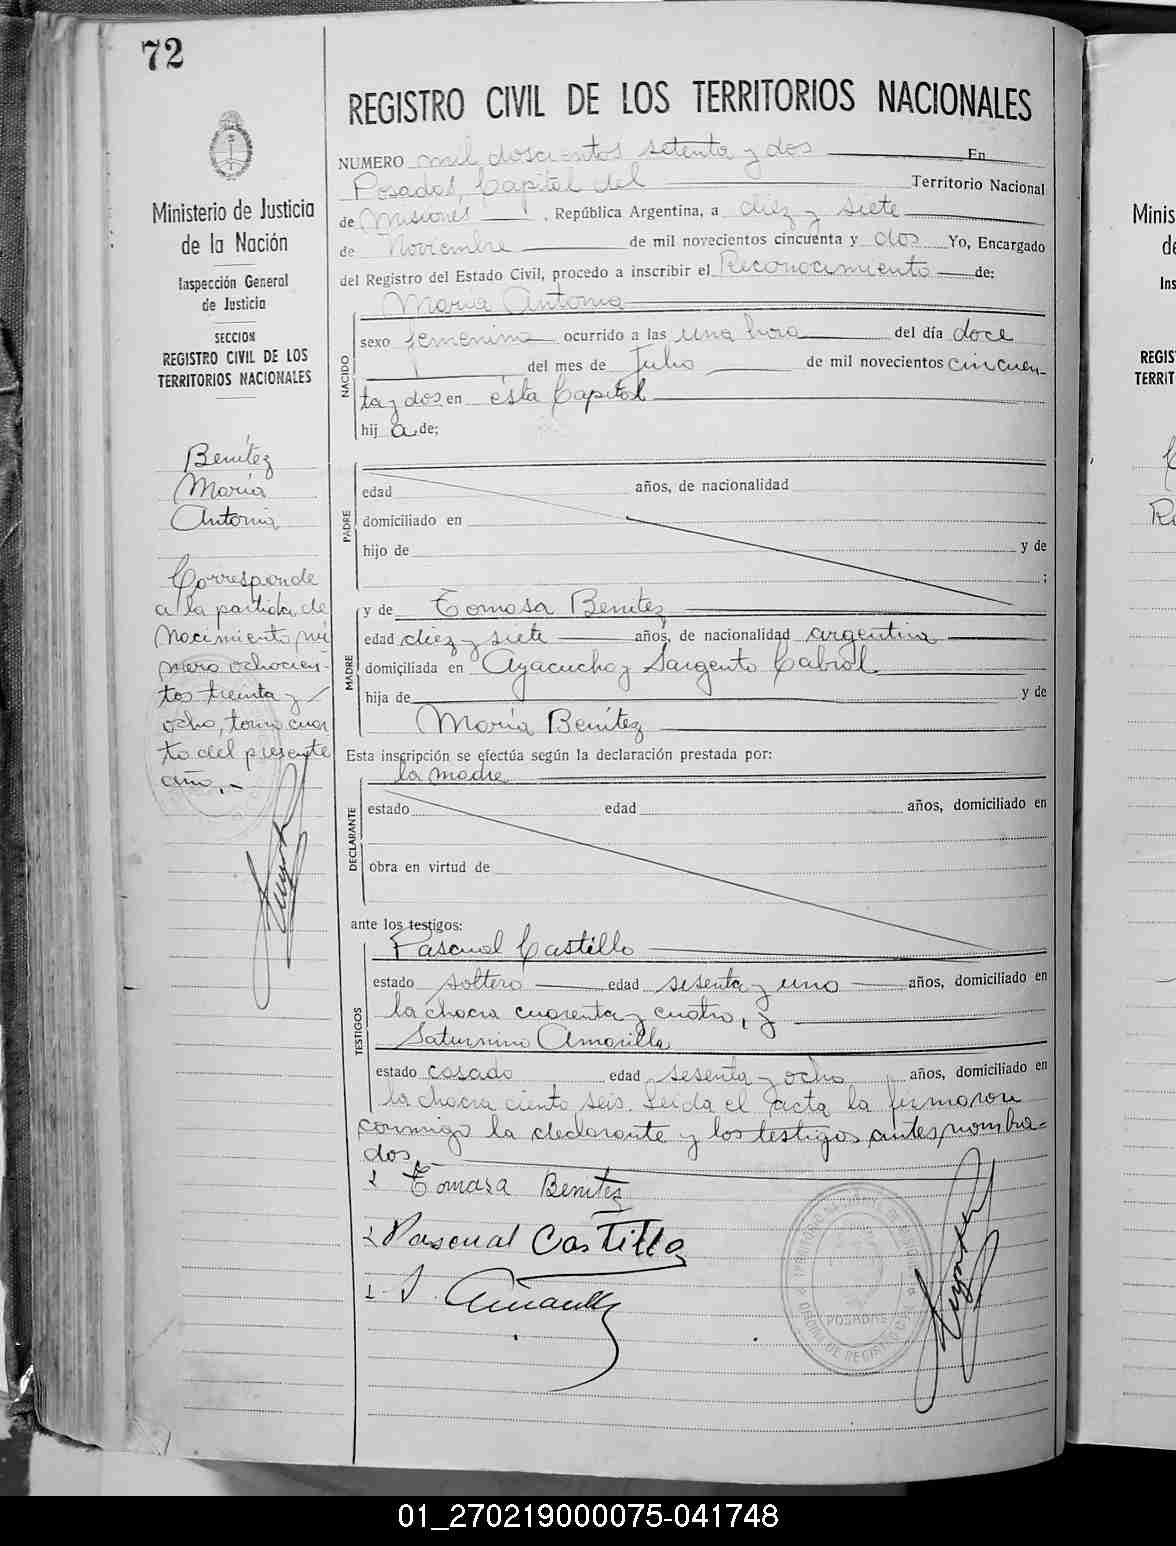 72
REGISTRO CIVIL DE LOS TERRITORIOS NACIONALES
Ministerio de Justicia
de la Nación
Inspección General
de Justicia
SECCION
REGISTRO CIVIL DE LOS
TERRITORIOS NACIONALES
Benítez
María
Antonia
Corresponde
a la partida de
Nacimiento nú
mero ochocien-
tos treinta y
ocho, tomo cuar
to del presente
año.-
NUMERO mil doscientos setenta y dos En
Posadas, Capital del Territorio Nacional
de Misiones, República Argentina, a diez y siete
de Noviembre de mil novecientos cincuenta y dos Yo, Encargado
del Registro del Estado Civil, procedo a inscribir el Reconocimiento de:
María Antonia
NACIDO
sexo femenino ocurrido a las una hora del día doce
del mes de Julio de mil novecientos cincuen-
ta y dos en ésta Capital
hij a de;
PADRE
edad años, de nacionalidad
domiciliado en
hijo de y de
;
MADRE
y de Tomasa Benítez
edad diez y siete años, de nacionalidad argentina
domiciliada en Ayacucho y Sargento Cabral
hija de y de
María Benítez
Esta inscripción se efectúa según la declaración prestada por:
la madre
DECLARANTE
estado edad años, domiciliado en
obra en virtud de
ante los testigos:
TESTIGOS
Pascual Castillo
estado soltero edad sesenta y uno años, domiciliado en
la chacra cuarenta y cuatro, y
Saturnino Amarilla
estado casado edad sesenta y ocho años, domiciliado en
la chacra ciento seis. Leída el acta la firmaron
conmigo la declarante y los testigos antes nombra-
dos.
Tomasa Benitez
Pascual Castillo
S. Amarilla
POSADAS
OFICINA DE REGISTRO CIVIL
Minis
de
Ins
REGIS
TERRIT
01_270219000075-041748